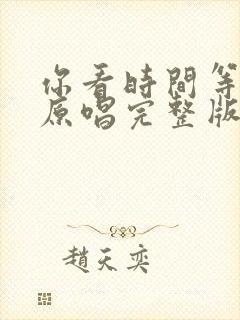 你看時間等
原唱完整版
趙天奕